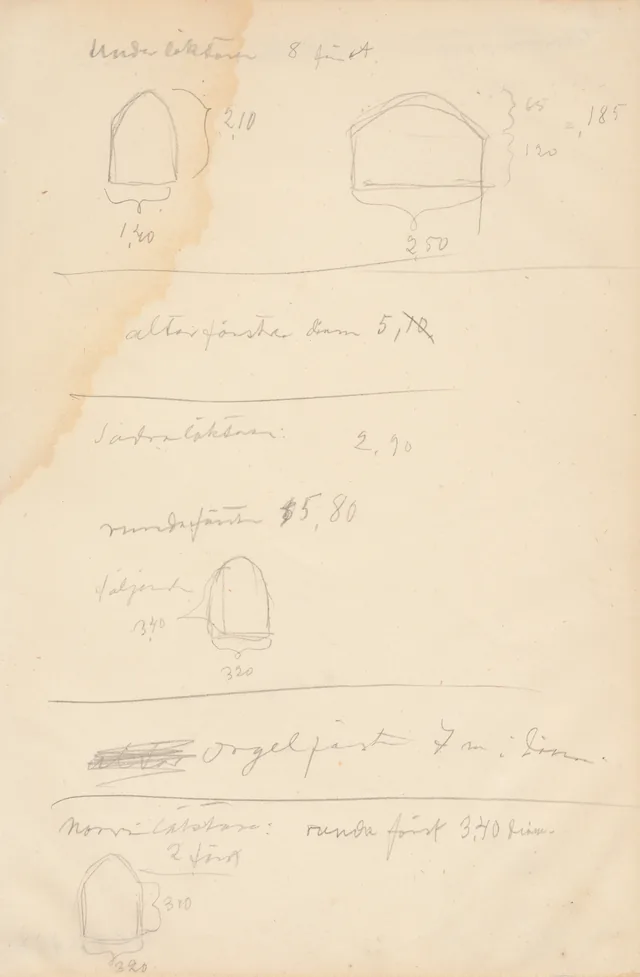 Under läktaren 8 fönst.
2,10
65
120
= 185
1,40
2,50
altarfönstret diam 5,10
Södra läktaren:
2,90
runda fönstr 5,80
följande
340
320
Orgelfönstr 7 m i diam.
Norra läktaren: runda fönst 3,40 diam.
2 fönst
310
320